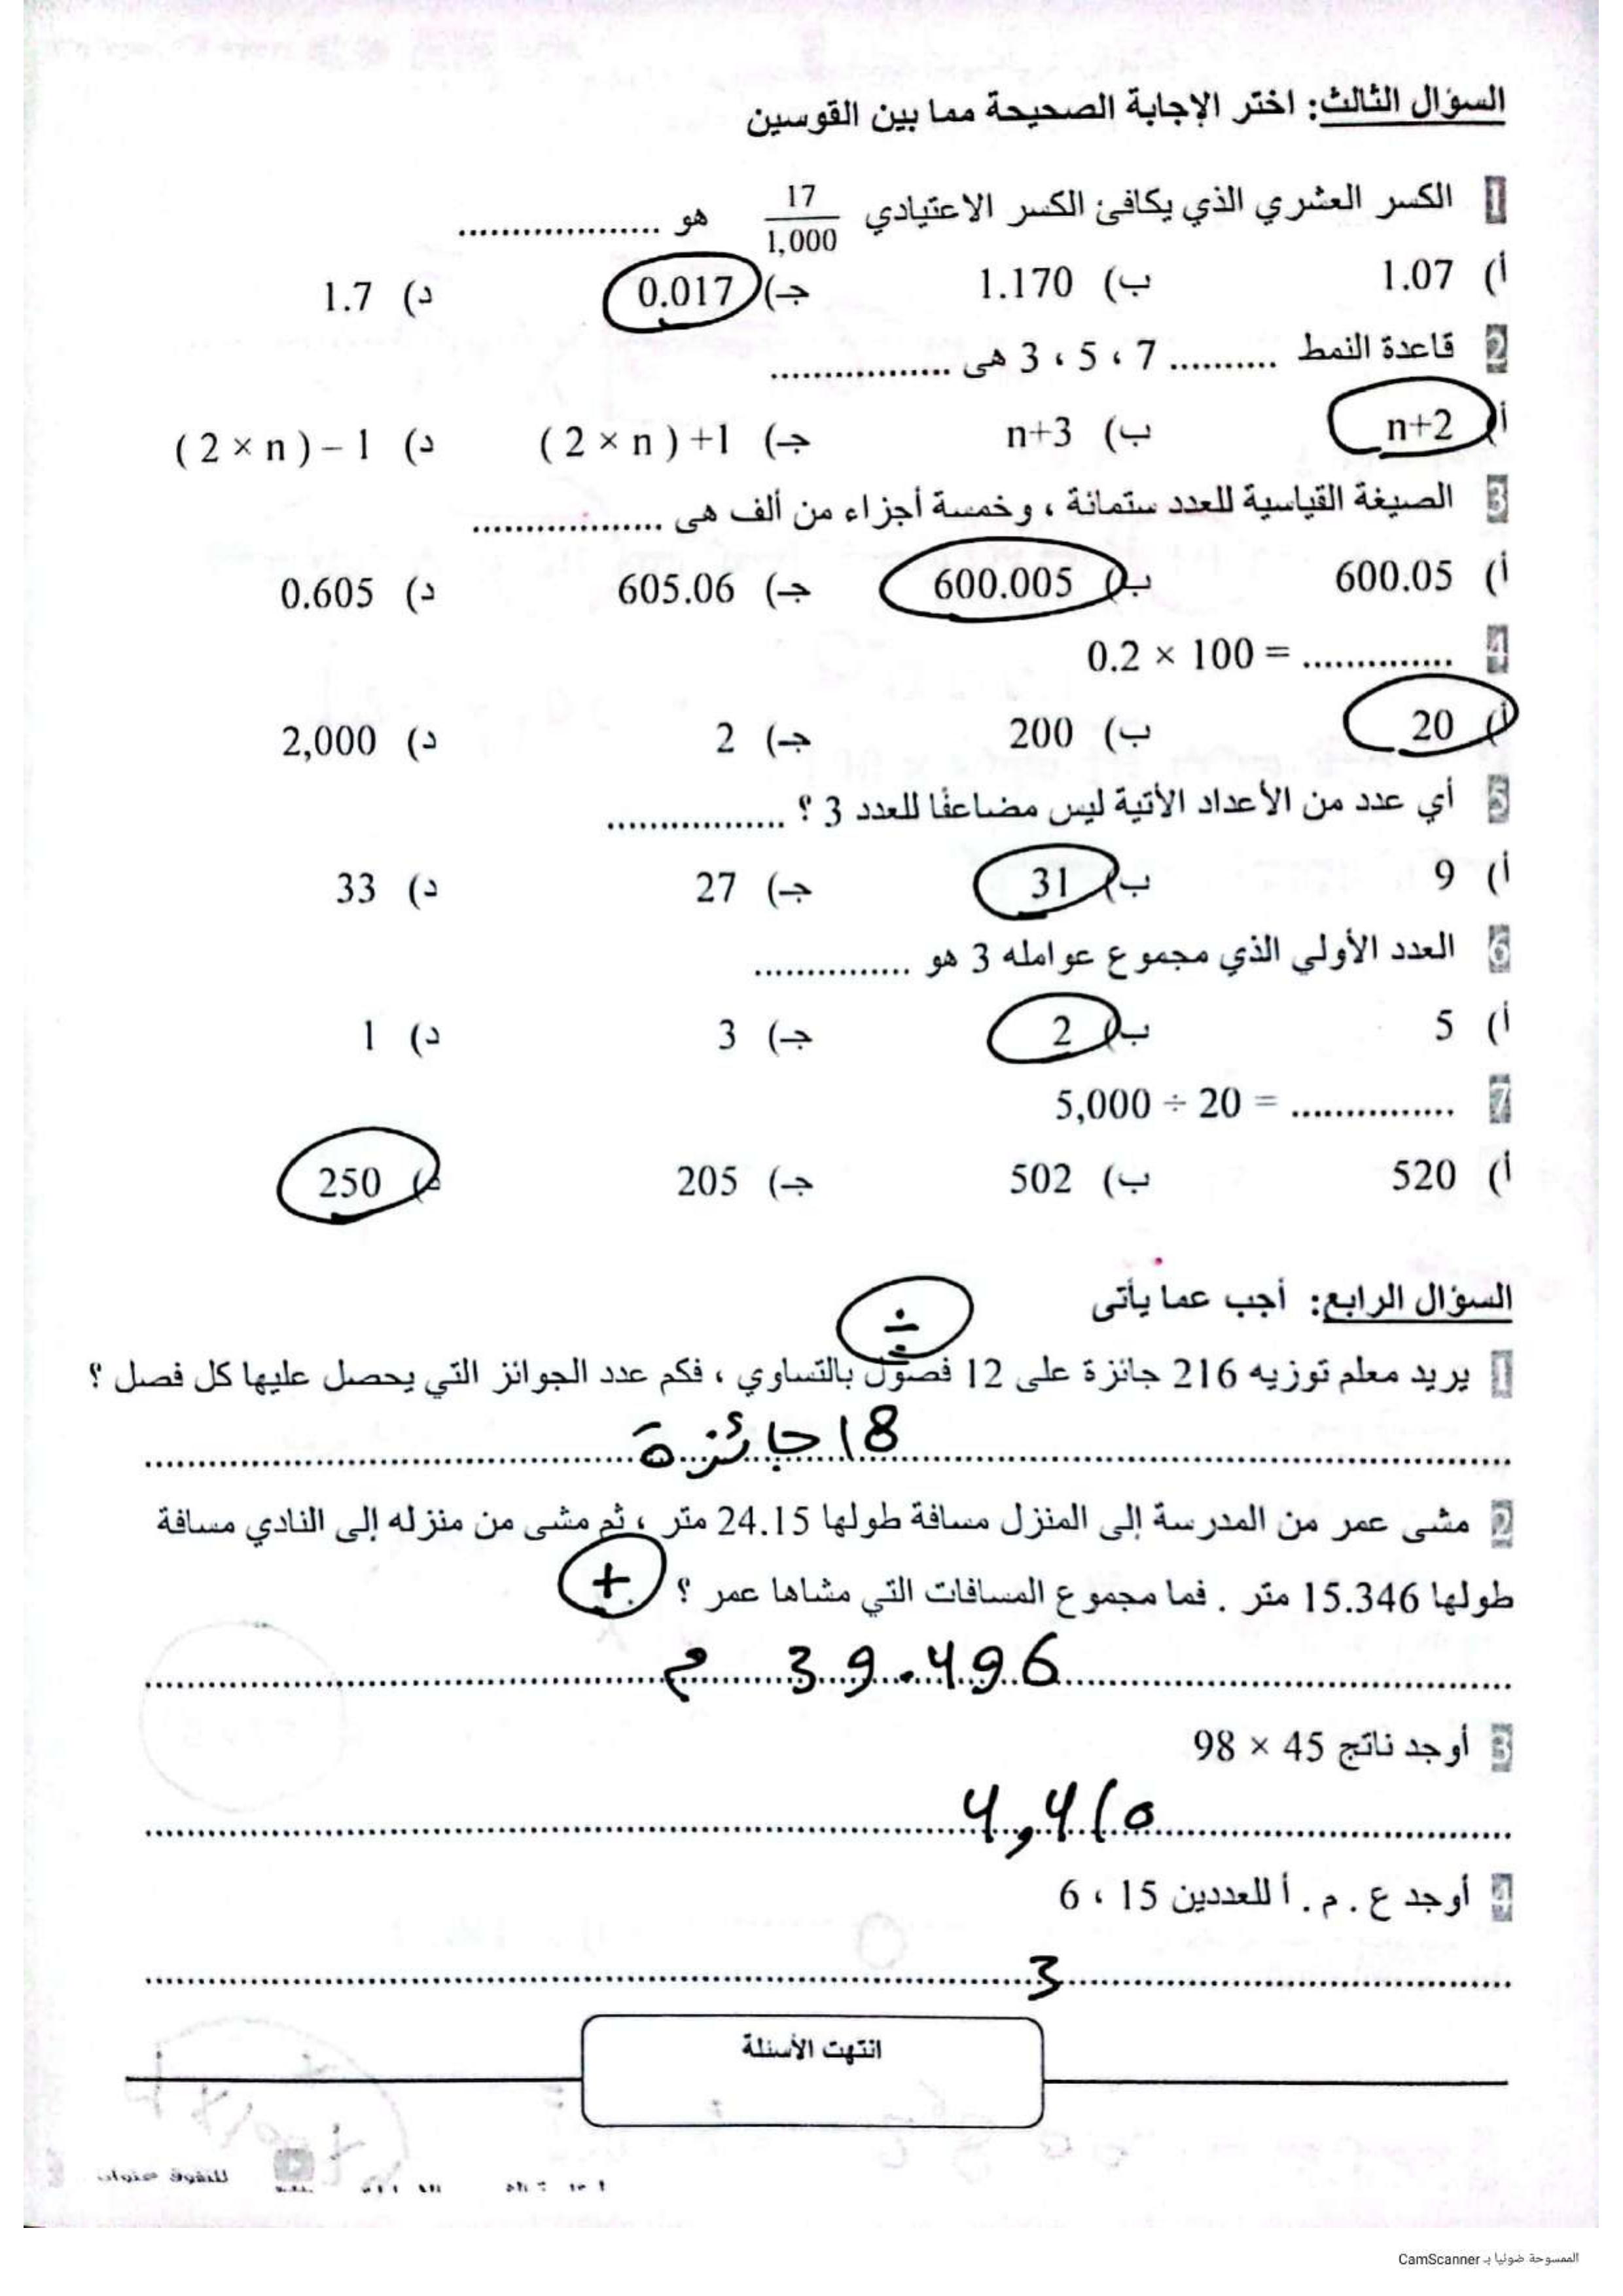 السؤال الثالث: اختر الإجابة الصحيحة مما بين القوسين
1 الكسر العشري الذي يكافئ الكسر الاعتيادي 17/1,000 هو ...................
أ) 1.07 ب) 1.170 جـ) 0.017 د) 1.7
2 قاعدة النمط .......... 7 ، 5 ، 3 هى .................
أ) n+2 ب) n+3 جـ) ( 2 × n ) +1 د) ( 2 × n ) – 1
3 الصيغة القياسية للعدد ستمائة ، وخمسة أجزاء من ألف هى ..................
أ) 600.05 ب) 600.005 جـ) 605.06 د) 0.605
4 0.2 × 100 = ..............
أ) 20 ب) 200 جـ) 2 د) 2,000
5 أي عدد من الأعداد الأتية ليس مضاعفًا للعدد 3 ؟ .................
أ) 9 ب) 31 جـ) 27 د) 33
6 العدد الأولي الذي مجموع عوامله 3 هو ...............
أ) 5 ب) 2 جـ) 3 د) 1
7 5,000 ÷ 20 = ................
أ) 520 ب) 502 جـ) 205 د) 250
السؤال الرابع: أجب عما يأتى
÷
1 يريد معلم توزيه 216 جائزة على 12 فصول بالتساوي ، فكم عدد الجوائز التي يحصل عليها كل فصل ؟
18 جائزة
2 مشى عمر من المدرسة إلى المنزل مسافة طولها 24.15 متر ، ثم مشى من منزله إلى النادي مسافة
طولها 15.346 متر . فما مجموع المسافات التي مشاها عمر ؟ +
39.496 م
3 أوجد ناتج 45 × 98
4,410
4 أوجد ع . م . أ للعددين 15 ، 6
3
انتهت الأسئلة
للتفوق عنوان
الممسوحة ضوئيا بـ CamScanner